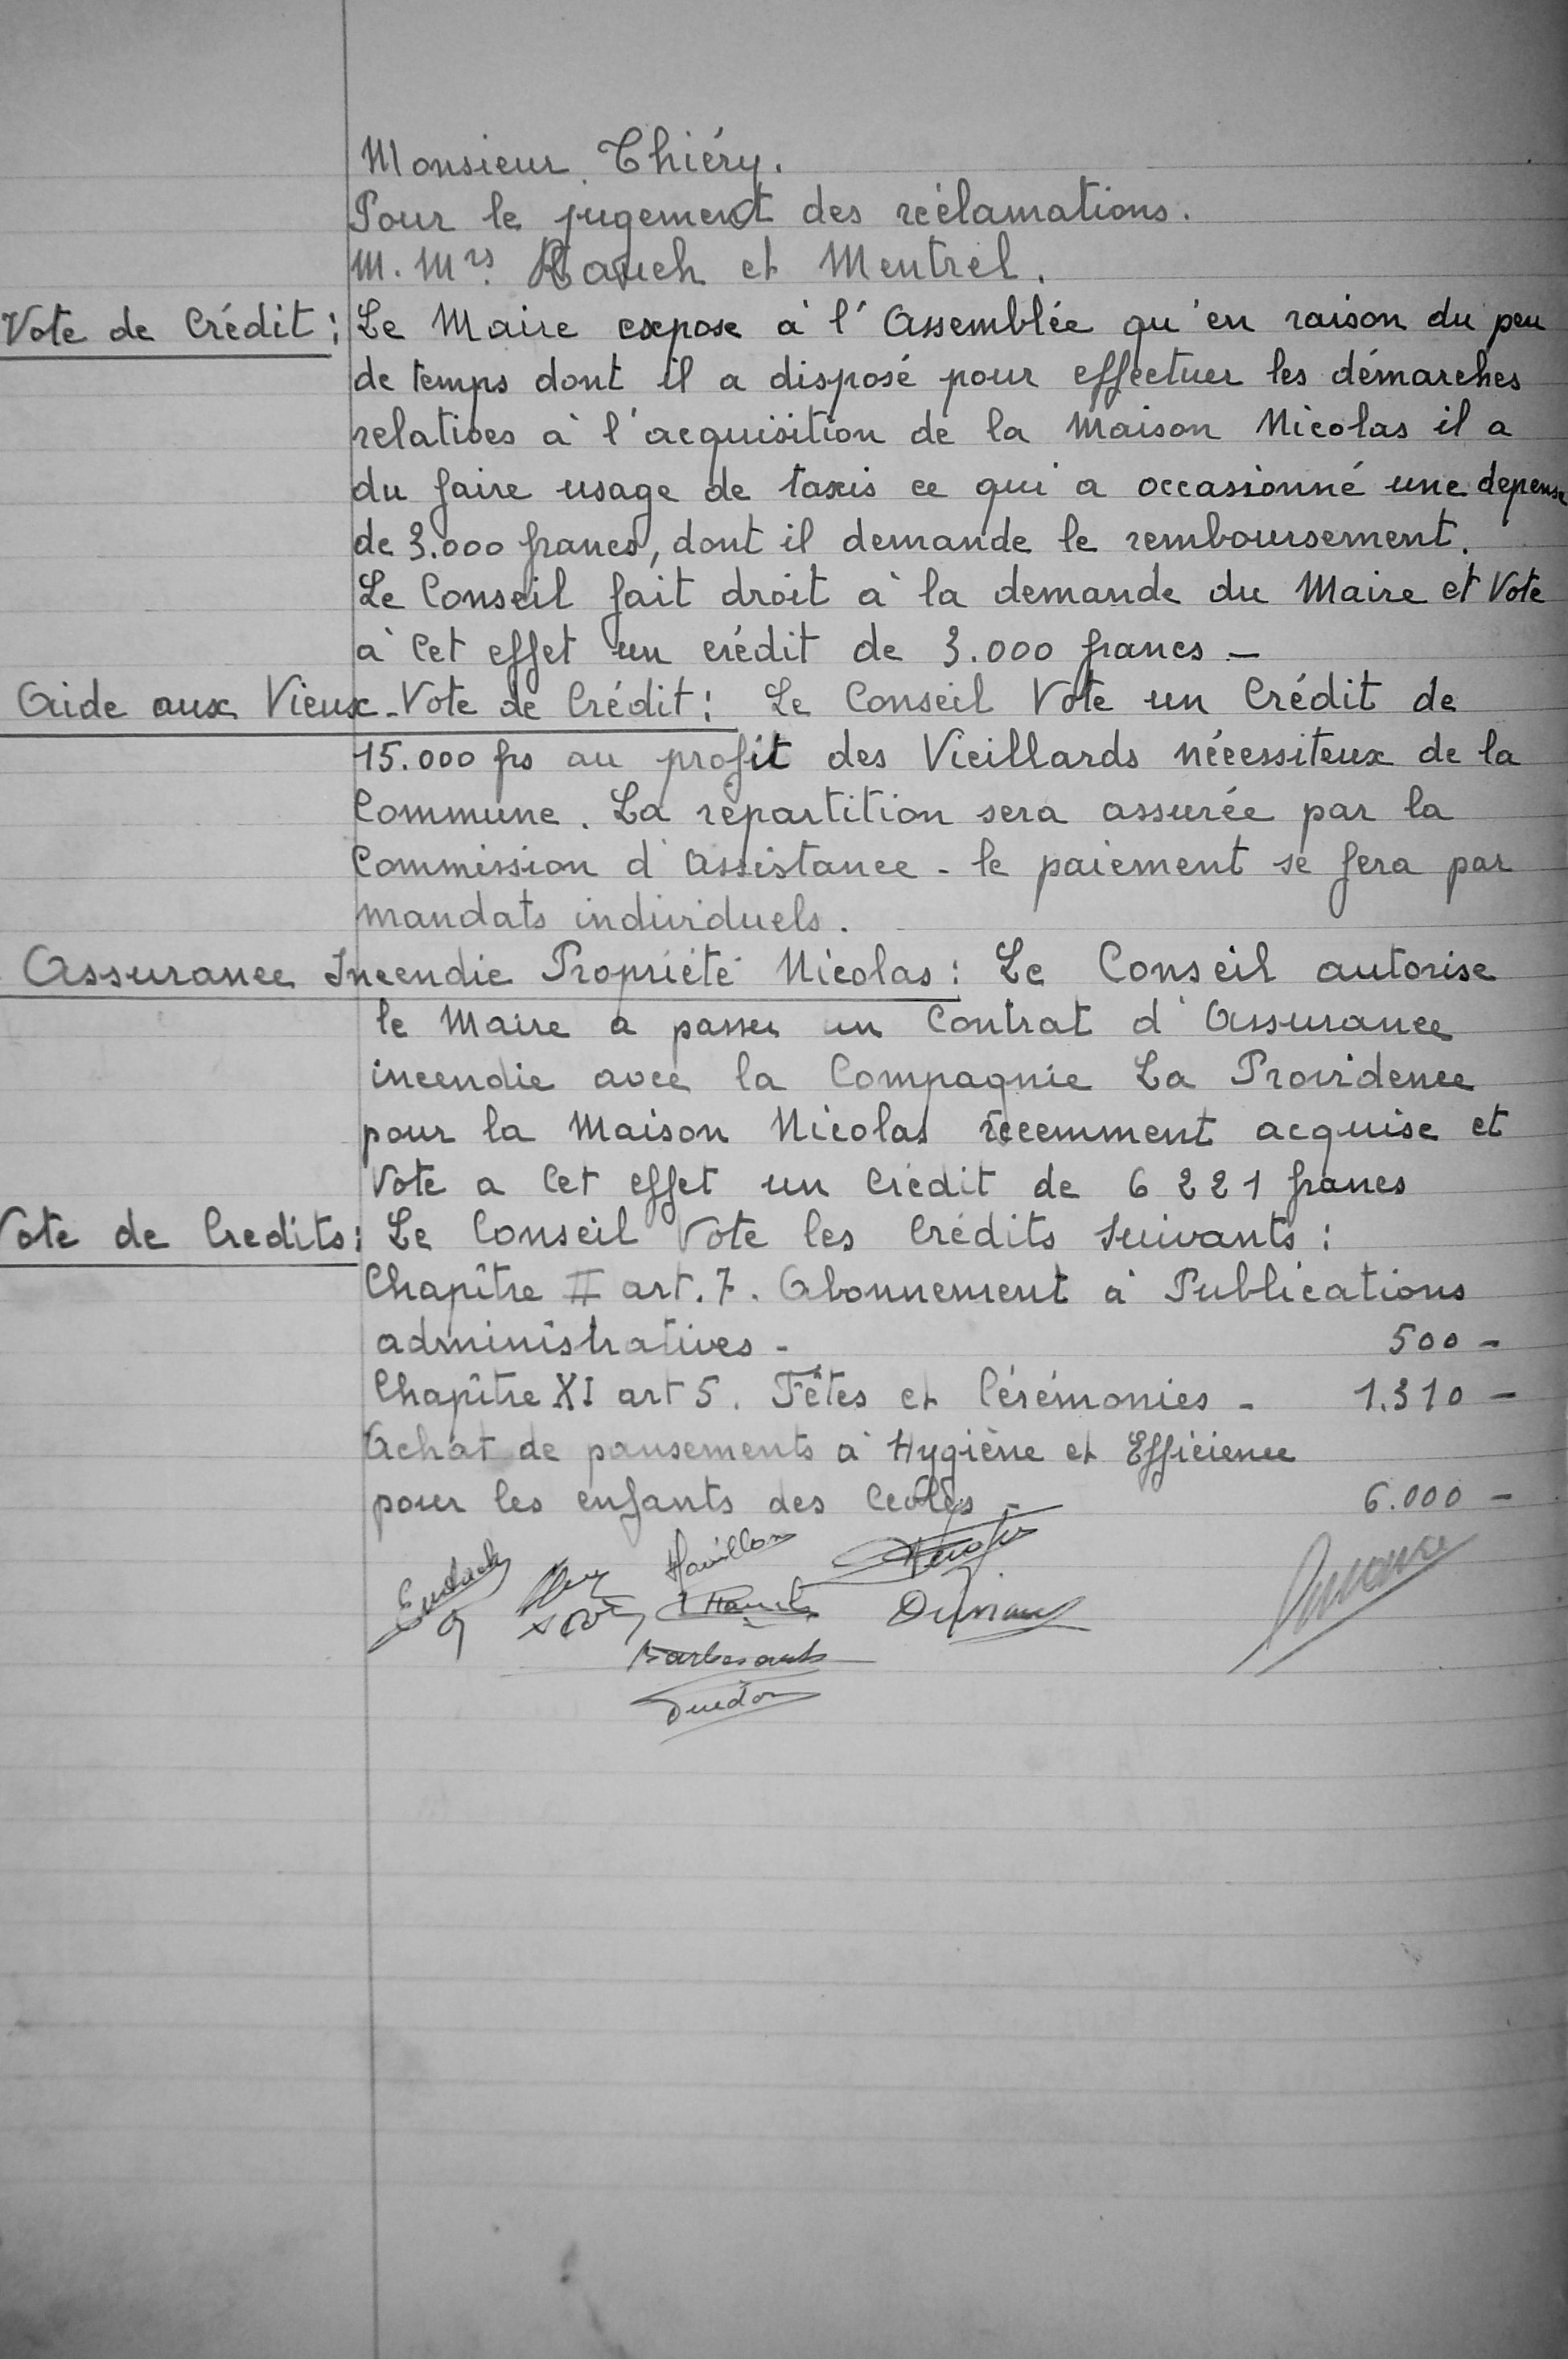 Monsieur Thiéry.
Pour le jugement des réclamations.
M. Mrs. Rauch et Mentrel.
Vote de Crédit : Le Maire expose à l'Assemblée qu'en raison du peu
de temps dont il a disposé pour effectuer les démarches
relatives à l'acquisition de la Maison Nicolas il a
du faire usage de taxis ce qui a occasionné une depense
de 3.000 francs, dont il demande le remboursement.
Le Conseil fait droit à la demande du Maire et Vote
à cet effet un crédit de 3.000 francs —
Aide aux Vieux - Vote de Crédit : Le Conseil Vote un Crédit de
15.000 frs au profit des Vieillards nécessiteux de la
Commune. La répartition sera assurée par la
Commission d'Assistance - le paiement se fera par
mandats individuels.
Assurance Incendie Propriété Nicolas : Le Conseil autorise
le Maire a passer un Contrat d'Assurance
incendie avec la Compagnie La Providence
pour la Maison Nicolas récemment acquise et
Vote a cet effet un Crédit de 6 221 francs
Vote de Credits : Le Conseil Vote les Crédits suivants :
Chapître II art. 7. Abonnement à Publications
administratives - 500 -
Chapître XI art 5. Fêtes et Cérémonies - 1.310 -
Achat de pansements à Hygiène et Efficience
pour les enfants des Ecoles - 6.000 -